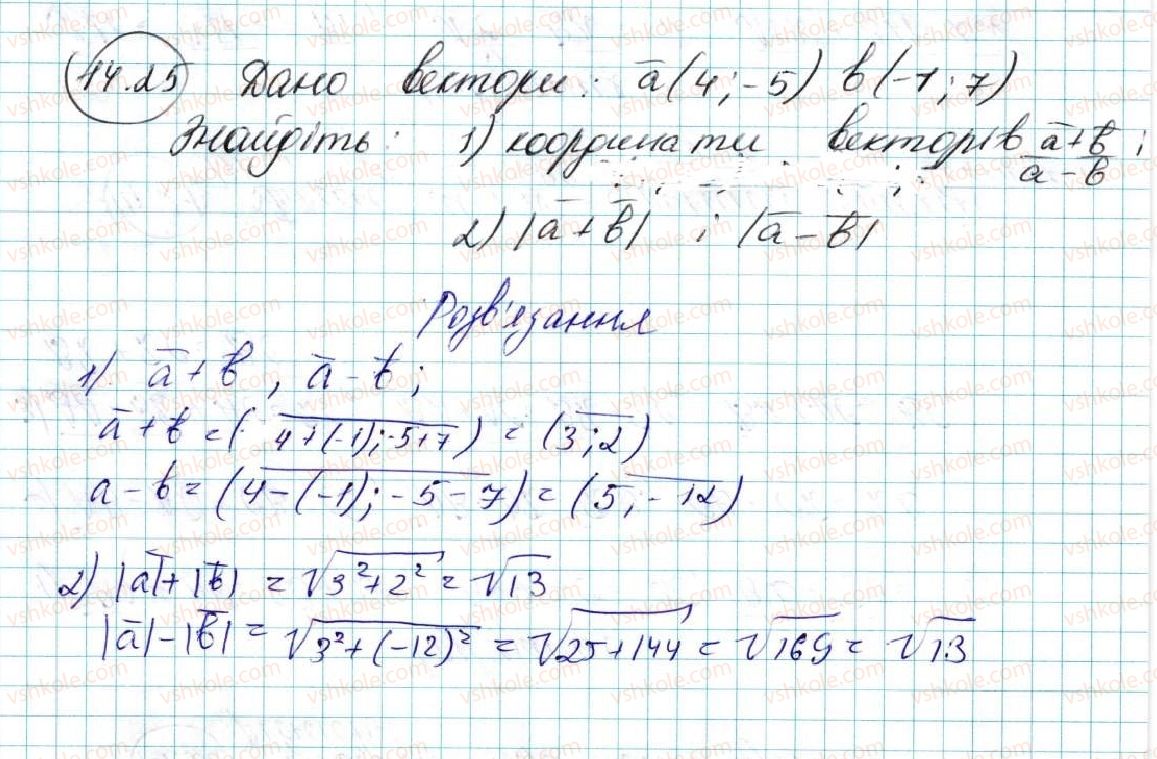 14.25 Дано вектори: a̅(4;-5) b(-1;7)
Знайдіть: 1) координати векторів a̅+b̅ ;
a̅-b̅
2) |a̅+b̅| ; |a̅-b̅|
Розв'язання
1) a̅+b̅, a̅-b̅;
a̅+b=(4+(-1);-5+7)=(3;2)
a-b=(4-(-1);-5-7)=(5;-12)
2) |a̅|+|b̅|=√3²+2²=√13
|a̅|-|b̅|=√3²+(-12)²=√25+144=√169=√13